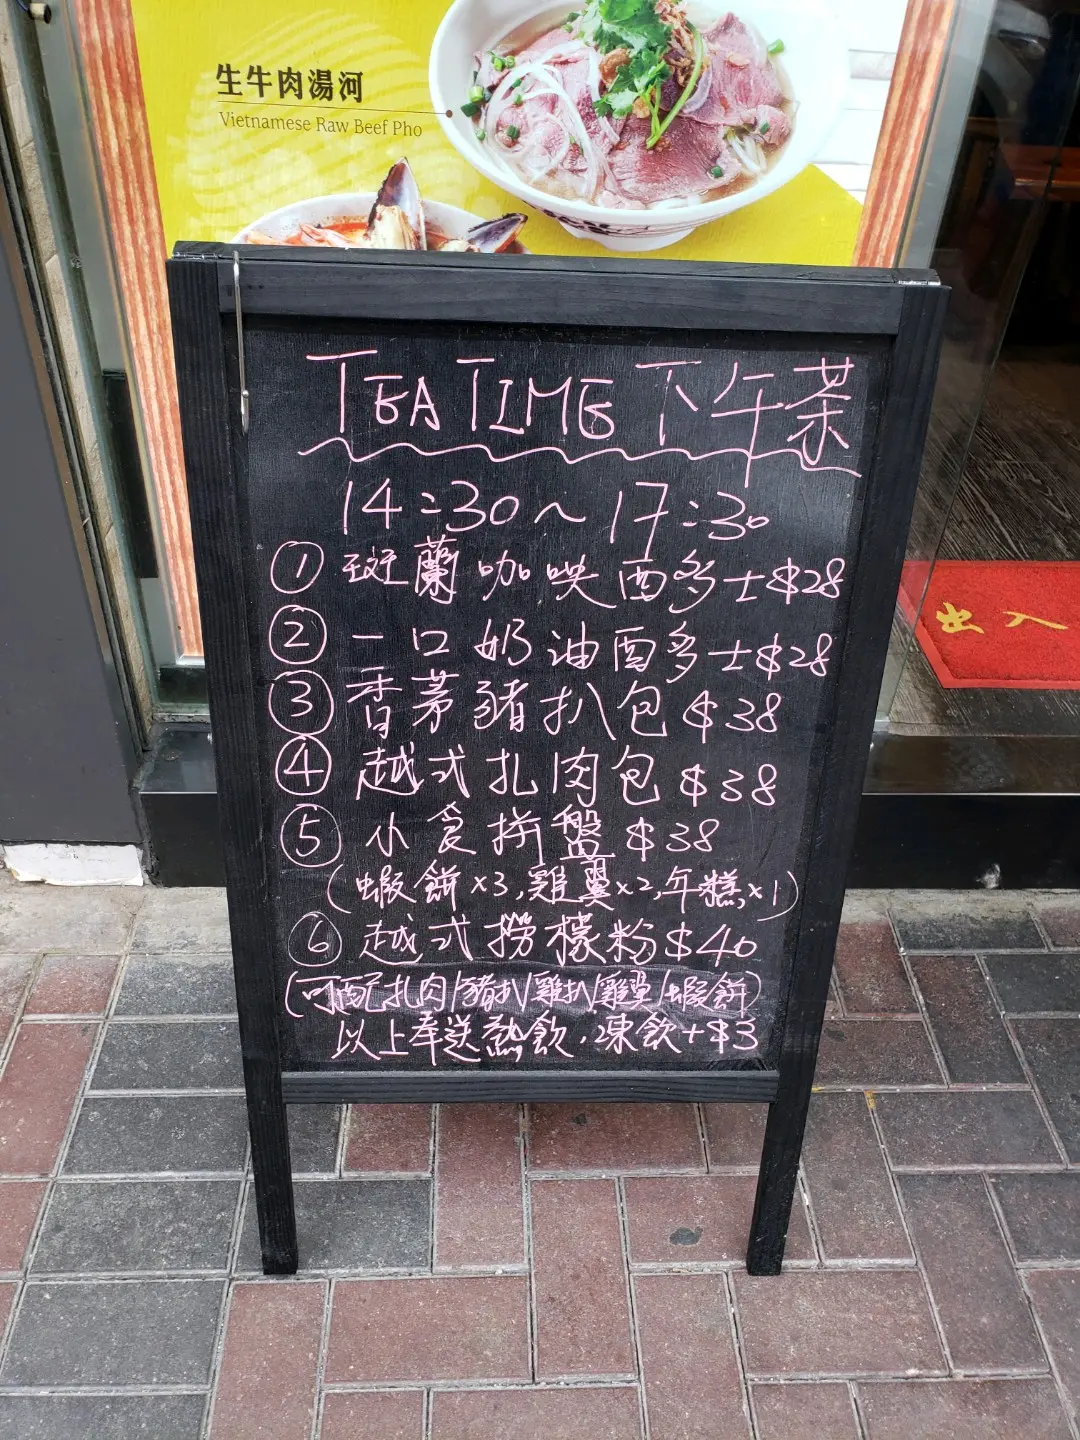 生牛肉湯河
Vietnamese Raw Beef Pho
TEA TIME 下午茶
14:30~17:30
① 斑蘭咖央西多士$28
② 一口奶油西多士$28
③ 香茅豬扒包$38
④ 越式扎肉包$38
⑤ 小食拼盤$38
(蝦餅x3,雞翼x2,年糕x1)
⑥ 越式撈檬粉$40
(可配扎肉/豬扒/雞扒/雞翼/蝦餅)
以上奉送熱飲,凍飲+$3
出入